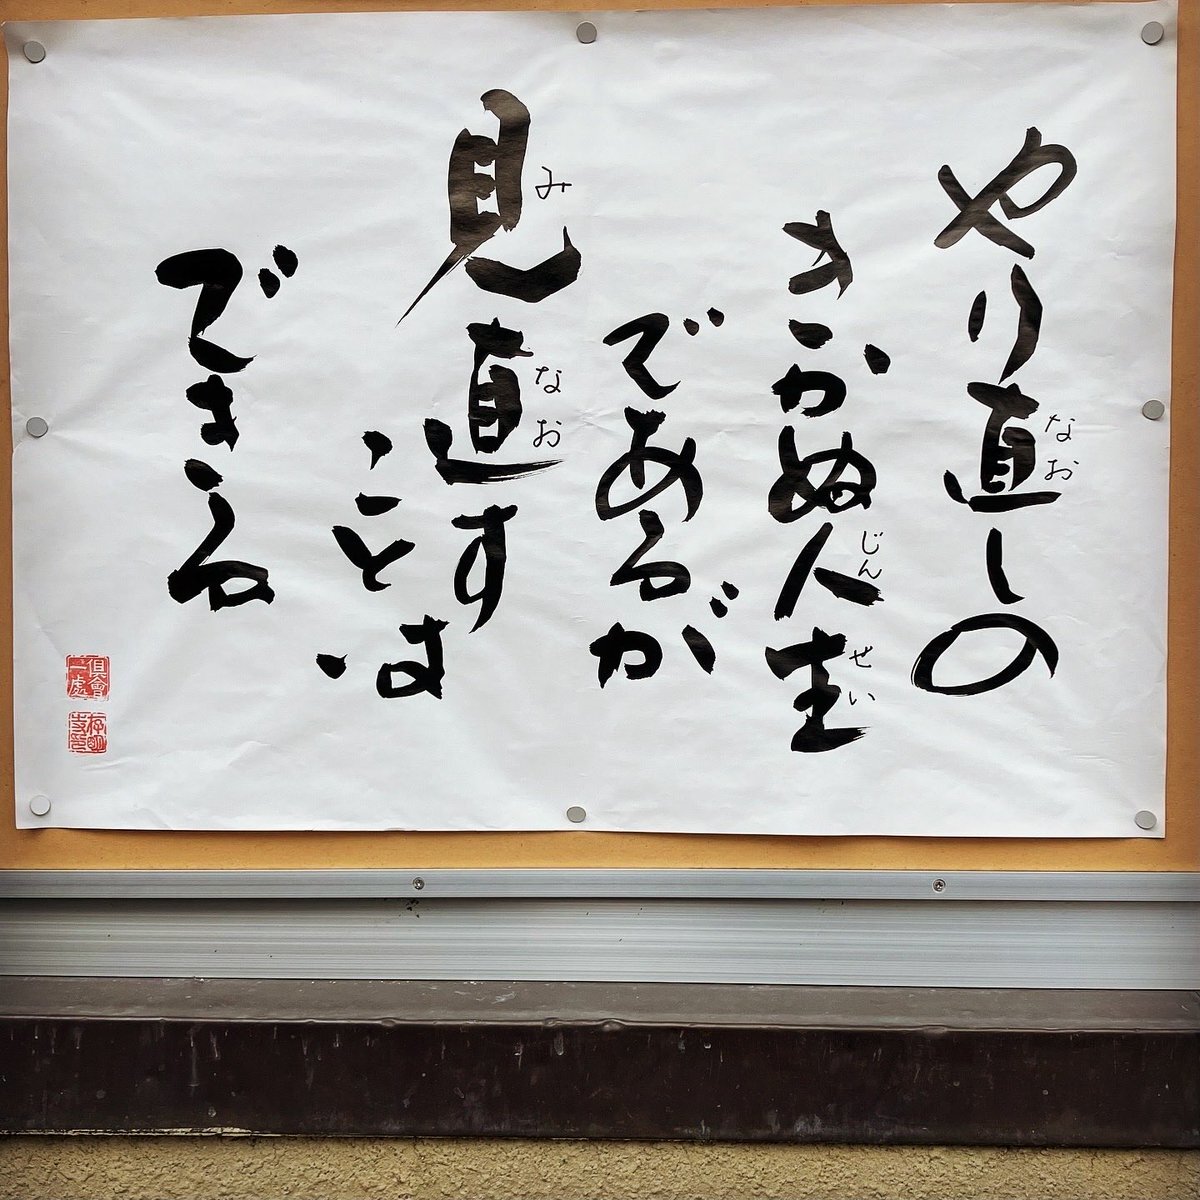 やり直しの
きかぬ人生
であるが
見直す
ことは
できる
なお
じんせい
み
なお
倶會一處